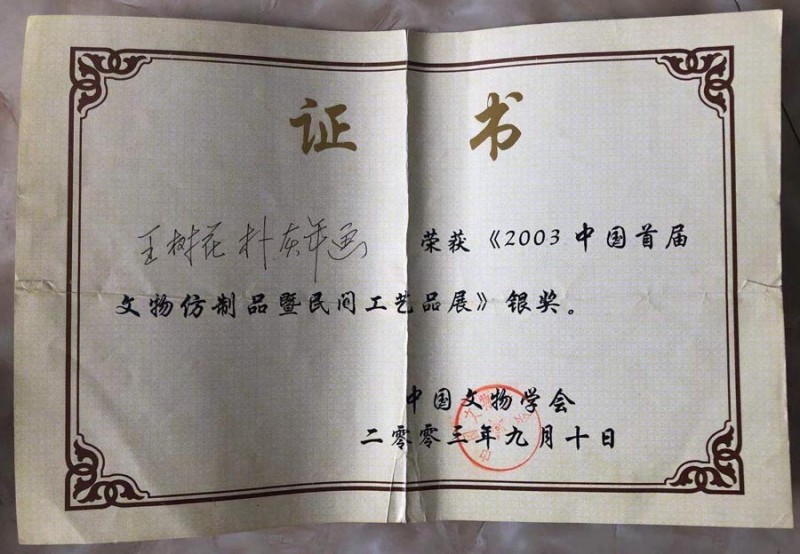 证书
王树花 朴灰年画 荣获《2003中国首届
文物仿制品暨民间工艺品展》银奖。
中国文物学会
二零零三年九月十日